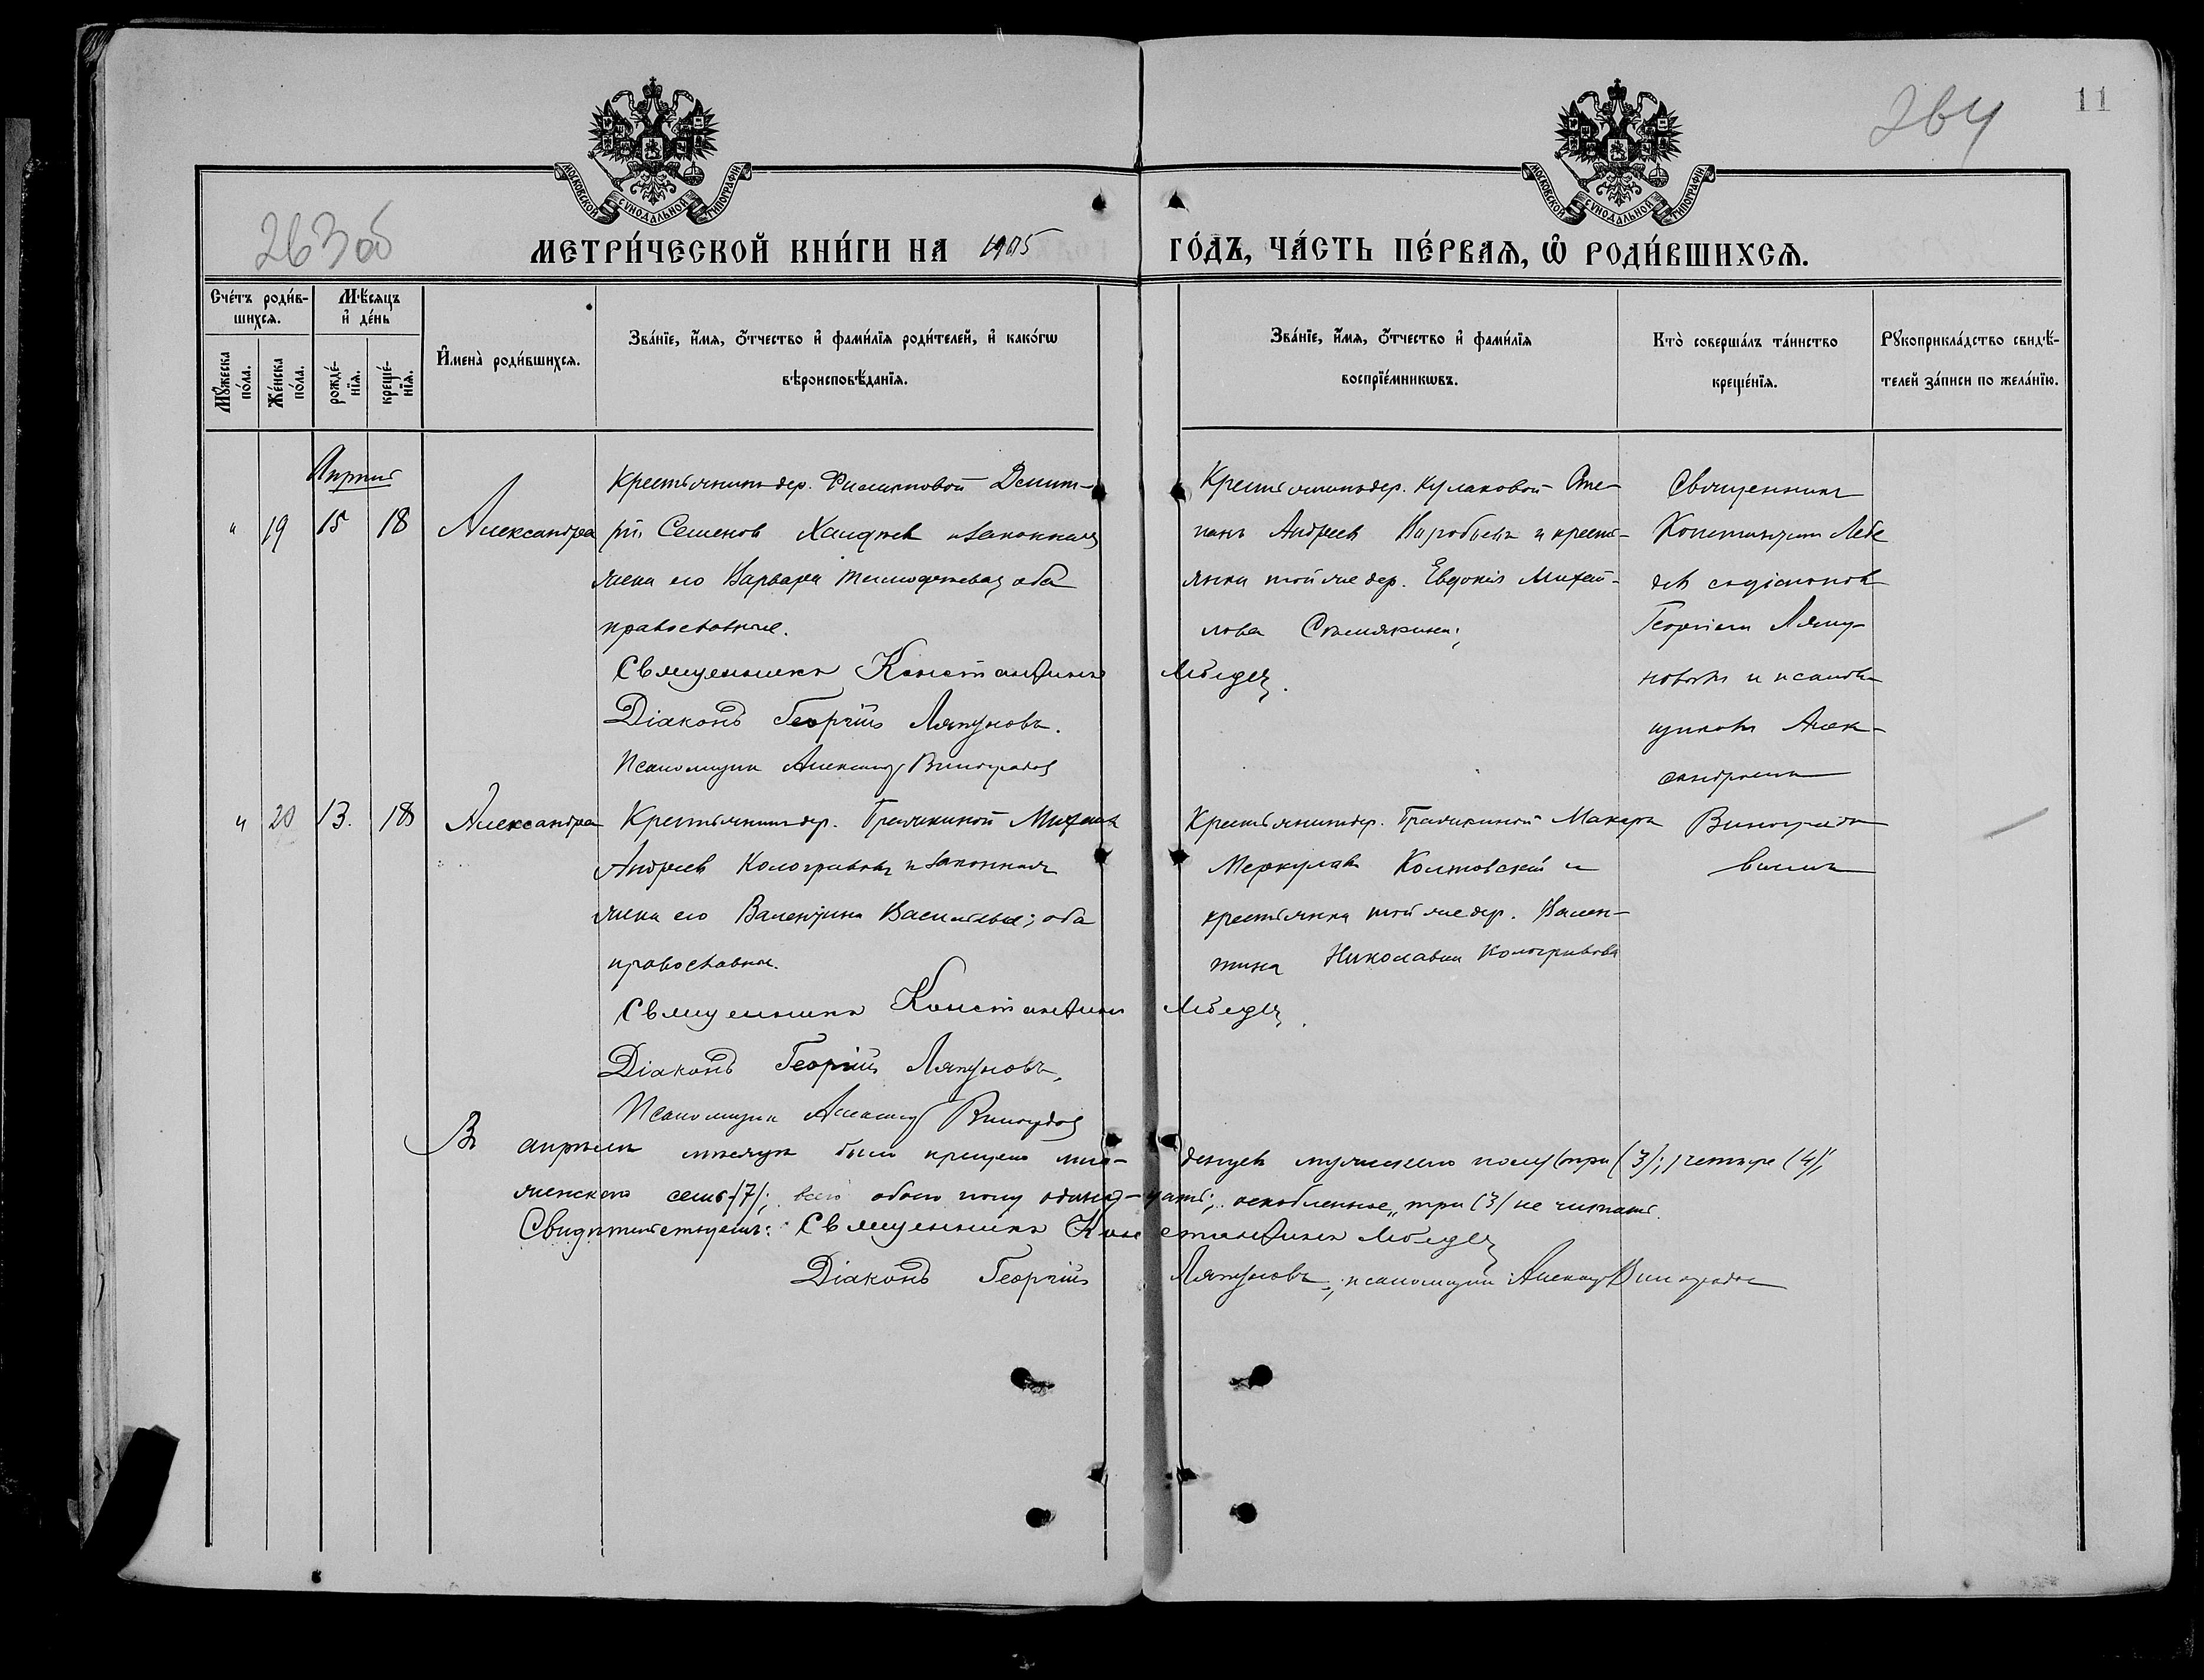 264
11
263 об
МОСКОВСКОЙ СУНОДАЛЬНОЙ ТИПОГРАФІИ
МОСКОВСКОЙ СУНОДАЛЬНОЙ ТИПОГРАФІИ
МЕТРИ́ЧЕСКОЙ КНИ́ГИ НА 1905
ГО́ДЪ, ЧА́СТЬ ПЕ́РВАЯ, Ѡ҆ РОДИ́ВШИХСѦ.
Сче́тъ роди́в-
шихсѧ.
Мѣ́сѧцъ
и҆ де́нь
Мꙋ́жеска
по́ла.
Же́нска
по́ла.
рожде́-
нїѧ.
креще́-
нїѧ.
И҆мена̀ роди́вшихсѧ.
Зва́нїе, и҆́мѧ, ѻ҆́тчество и҆ фами́лїѧ роди́телей, и҆ како́гѡ
вѣроисповѣ́данїѧ.
Зва́нїе, и҆́мѧ, ѻ҆́тчество и҆ фами́лїѧ
воспрїе́мникѡвъ.
Кто̀ соверша́лъ та́инство
креще́нїѧ.
Рꙋкоприкла́дство свидѣ́-
телей за́писи по жела́нїю.
Апрѣль
" 19 15 18 Александра
Крестьянинъ дер. Дмит-
рій Семеновъ и законная
жена его Варвара оба
православные.
Священникъ Константинъ Лебедевъ.
Діаконъ Георгій Ляпуновъ.
Псаломщикъ Александръ Виноградовъ
Крестьянинъ дер. Кулаковой Сте-
панъ Андреевъ Воробьевъ и кресть-
янка той же дер. Евдокія Михай-
лова
Священникъ
Константинъ Лебе
девъ съ діакономъ
Георгіемъ Ляпу-
новымъ и псалом
щикомъ Алек-
сандромъ
Виноградо
вымъ
" 20 13. 18 Александра
Крестьянинъ дер. Михаилъ
Андреевъ Кологривовъ и законная
жена его Валентина Васильева; оба
православные.
Священникъ Константинъ Лебедевъ.
Діаконъ Георгій Ляпуновъ,
Псаломщикъ Александръ Виноградовъ
Крестьянинъ дер. Макаръ
Меркуловъ Колтовскій и
крестьянка той же дер. Вален-
тина Николаева Кологривова
Въ апрѣлѣ мѣсяцѣ было крещено мла- денцевъ мужескаго полу (три (3); четыре (4),
женскаго семь (7); всего обоего полу одинад- цать; оскобленное „три (3) не читать.
Свидѣтельствуемъ: Священникъ Константинъ Лебедевъ
Діаконъ Георгій Ляпуновъ, псаломщикъ Александръ Виноградовъ